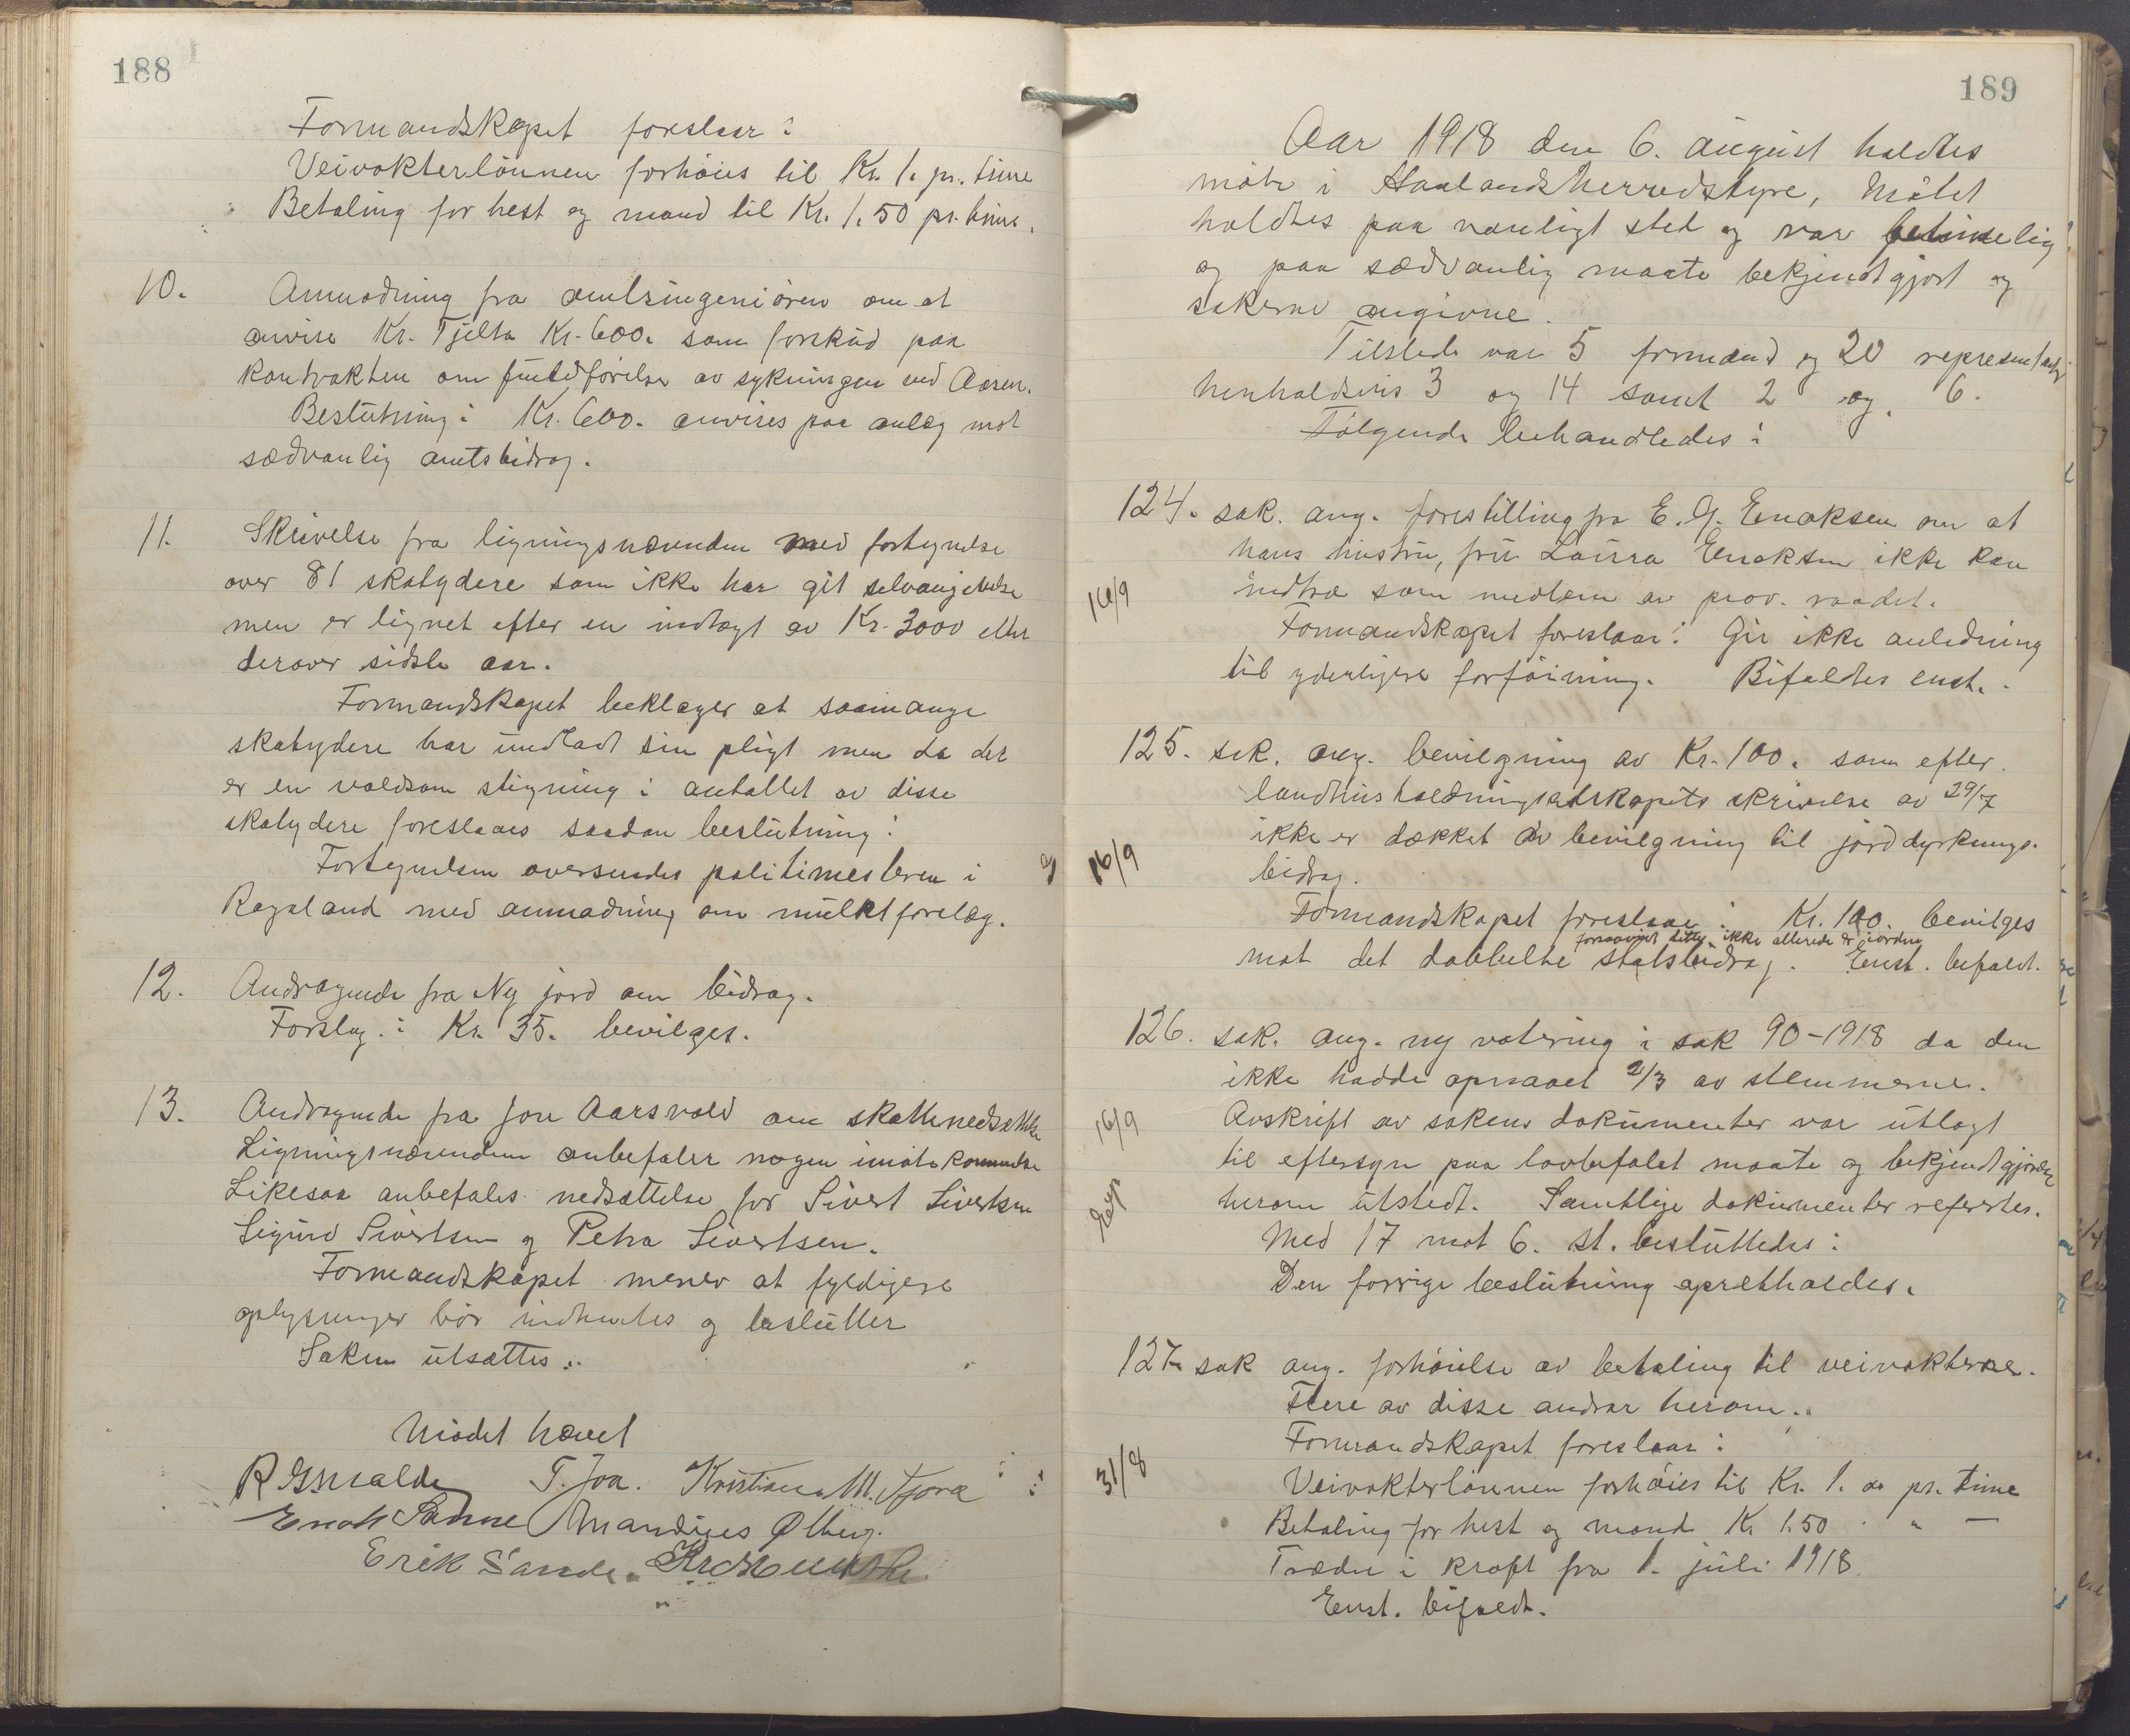 188
Formandskapet foreslaar:
Veivokterlønnen forhøies til Kr. 1. pr. time
Betaling for hest og mand til Kr. 1.50 pr. time.
10. Anmodning fra amtsingeniøren om at
anvise Kr. Tjelta Kr. 600. som forskud paa
kontrakten om fuldførelse av sykningen ved Aasen.
Beslutning: Kr. 600. anvises paa anlæg mot
sædvanlig amtsbidrag.
11. Skrivelse fra ligningsnævnden med fortegnelse
over 81 skatydere som ikke har git selvangivelse
men er lignet efter en indtægt av Kr. 3000 eller
derover sidste aar.
Formandskapet beklager at saamange
skatydere har undladt sin pligt men da det
er en voldsom stigning i antallet av disse
skatydere foreslaaes saadan beslutning:
Fortegnelsen oversendes politimesteren i
Rogaland med anmodning om mulktforelæg.
12. Andragende fra Ny jord om bidrag.
Forslag: Kr. 35. bevilges.
13. Andragende fra Jon Aarsvold om skattenedsættelse
Ligningsnævnden anbefaler nogen imøtekommelse
Likesaa anbefales nedsættelse for Sivert Sivertsen
Sigurd Sivertsen og Petra Sivertsen.
Formandskapet mener at fyldigere
oplysninger bør indhentes og beslutter
Saken utsættes.
Mødet hævet
T. Joa. Kristian M. Tjora
Enok Sømme Amandius Ølberg.
Erik Sande.
189
Aar 1918 den 6. august holdtes
møte i Haalandsherredstyre, Møtet
holdtes paa vanligt sted og var betimelig
og paa sædvanlig maate bekjendtgjort og
sakerne angivne.
Tilstede var 5 formænd og 20 repræsentanter
henholdsvis 3 og 14 samt 2 og 6.
Følgende behandledes:
124. sak. ang. forestilling fra E. G. Enoksen om at
hans hustru, fru Laura Enoksen ikke kan
16/9 indtræ som medlem av prov. raadet.
Formandskapet foreslaar: Gir ikke anledning
til yderligere forføining. Bifaldtes enst.
125. sak. ang. bevilgning av Kr. 100. som efter
landhusholdningselskapets skrivelse av 29/7
16/9 ikke er dækket av bevilgning til jorddyrknings-
bidrag.
Formandskapet foreslaar: Kr. 100. bevilges
forsaavidt dette ikke allerede er iorden
mot det dobbelte statsbidrag. Enst. befaldt.
126. sak. ang. ny votering i sak 90-1918 da den
ikke hadde opnaaet 2/3 av stemmerne.
16/9 Avskrift av sakens dokumenter var utlagt
til eftersyn paa lovbefalet maate og bekjendtgjørelse
herom utstedt. Samtlige dokumenter refertes.
Med 17 mot 6. st. besluttedes:
Den forrige beslutning opretholdes.
127. sak ang. forhøielse av betaling til veivokterne.
Flere av disse andrar herom.
Formandskapet foreslaar:
31/8 Veivokterlønnen forhøies til Kr. 1. 00 pr. time
Betaling for hest og mand Kr 1.50 " " —
Træder i kraft fra 1. juli 1918.
Enst. bifaldt.